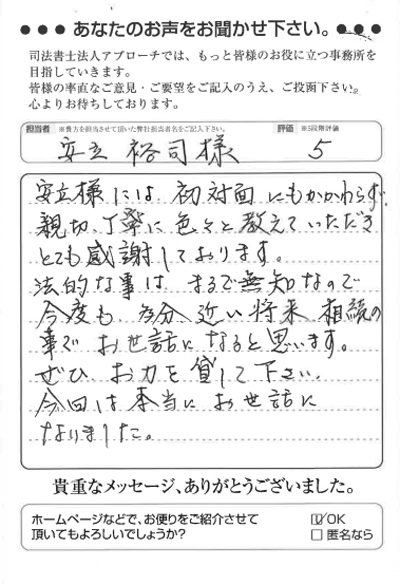 ●●● あなたのお声をお聞かせ下さい。 ●●●
司法書士法人アプローチでは、もっと皆様のお役に立つ事務所を
目指していきます。
皆様の率直なご意見・ご要望をご記入のうえ、ご投函下さい。
心よりお待ちしております。
担当者 ※貴方を担当させて頂いた弊社担当者名をご記入下さい。 評価 ※5段階評価
安立 裕司様 5
安立様には 初対面にもかかわらず、
親切、丁寧に色々と教えていただき
とても感謝しております。
法的な事は まるで無知なので
今度も 多分 近い将来 相続の
事で お世話になると思います。
ぜひ、お力を貸して下さい。
今回は本当に お世話に
なりました。
貴重なメッセージ、ありがとうございました。
ホームページなどで、お便りをご紹介させて
頂いてもよろしいでしょうか?
☑OK
□匿名なら